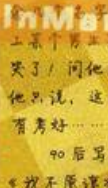 InMa
上某个男士
哭了！问他
他只说，这
有考好……
90后写
我不愿选